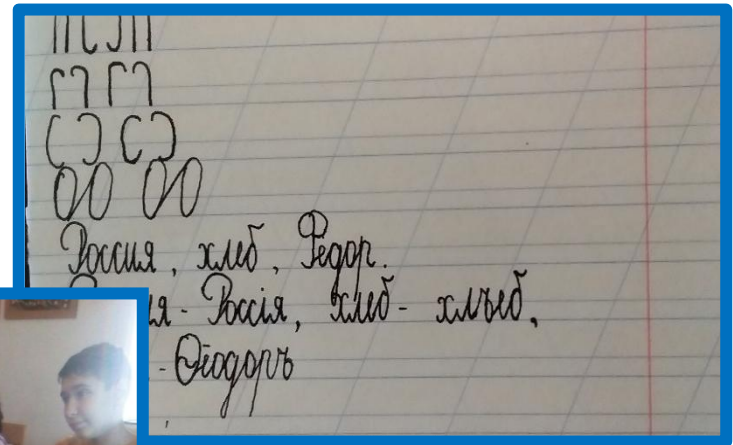 Россия, хлеб, Федор.
ия - Россія, хлеб - хлъеб,
- Ѳеодоръ